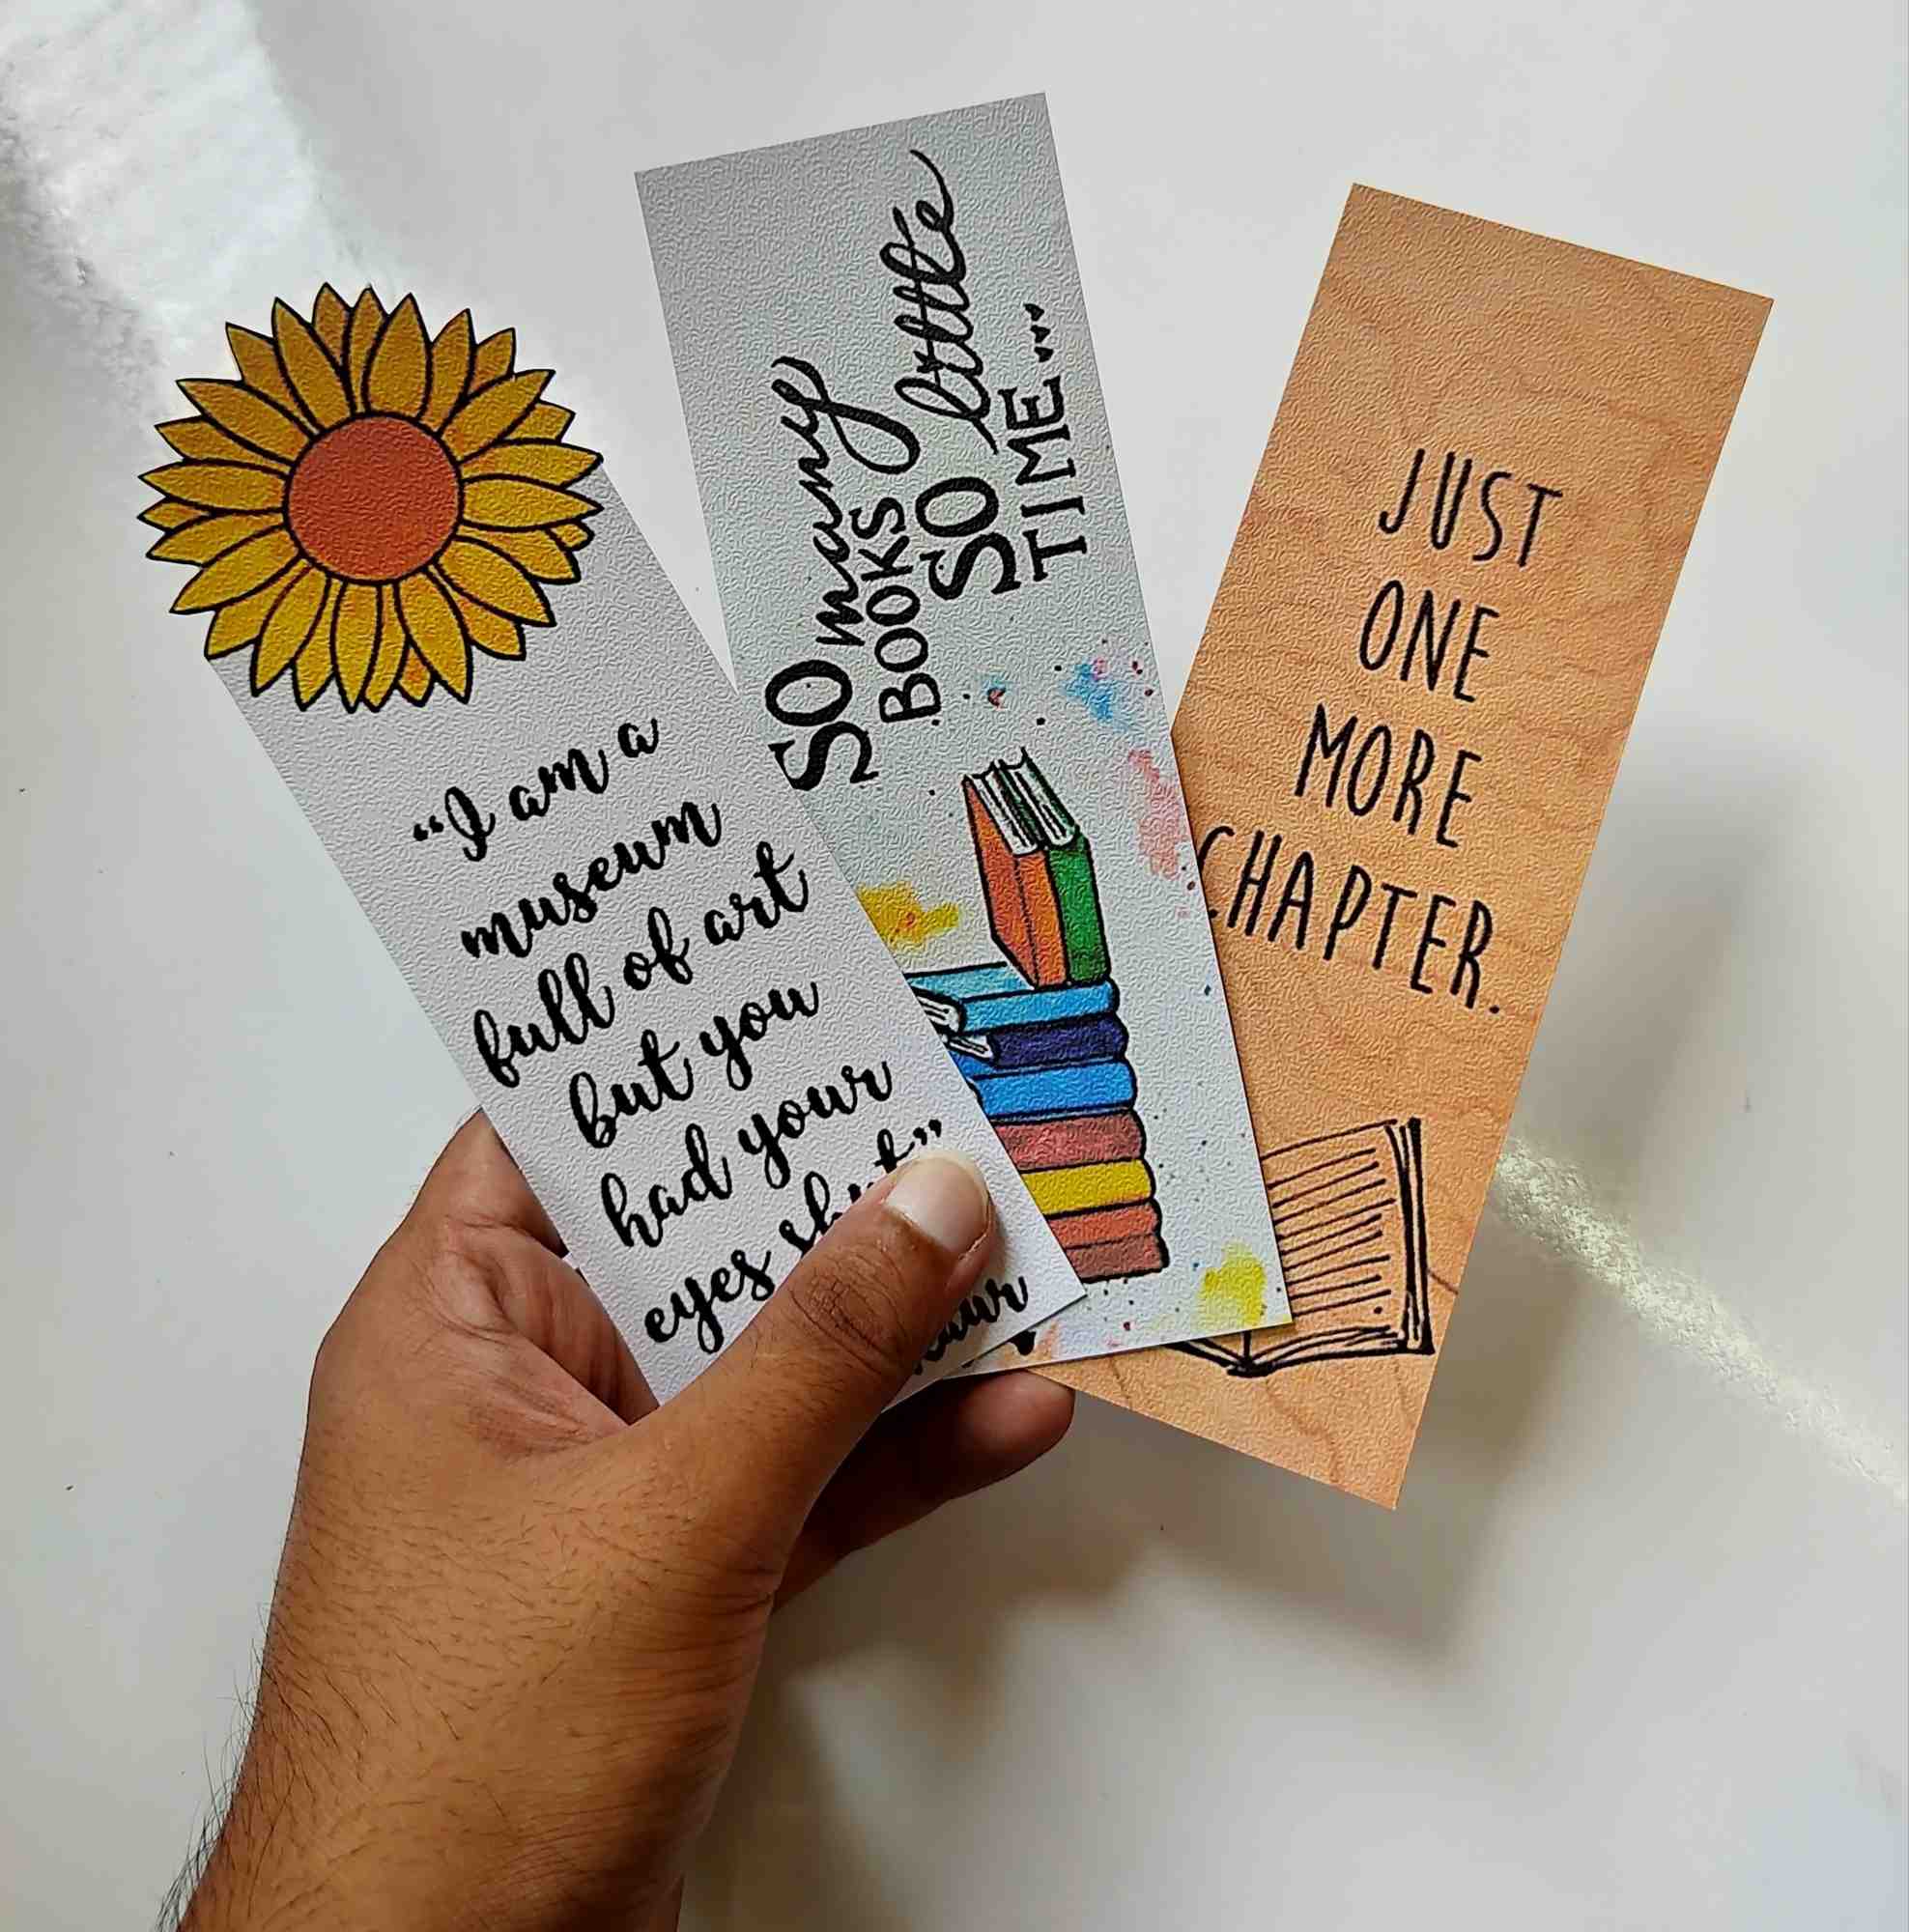 “I am a
museum
full of art
but you
had your
eyes shut”
SO many
BOOKS
SO little
TIME...
JUST
ONE
MORE
CHAPTER.